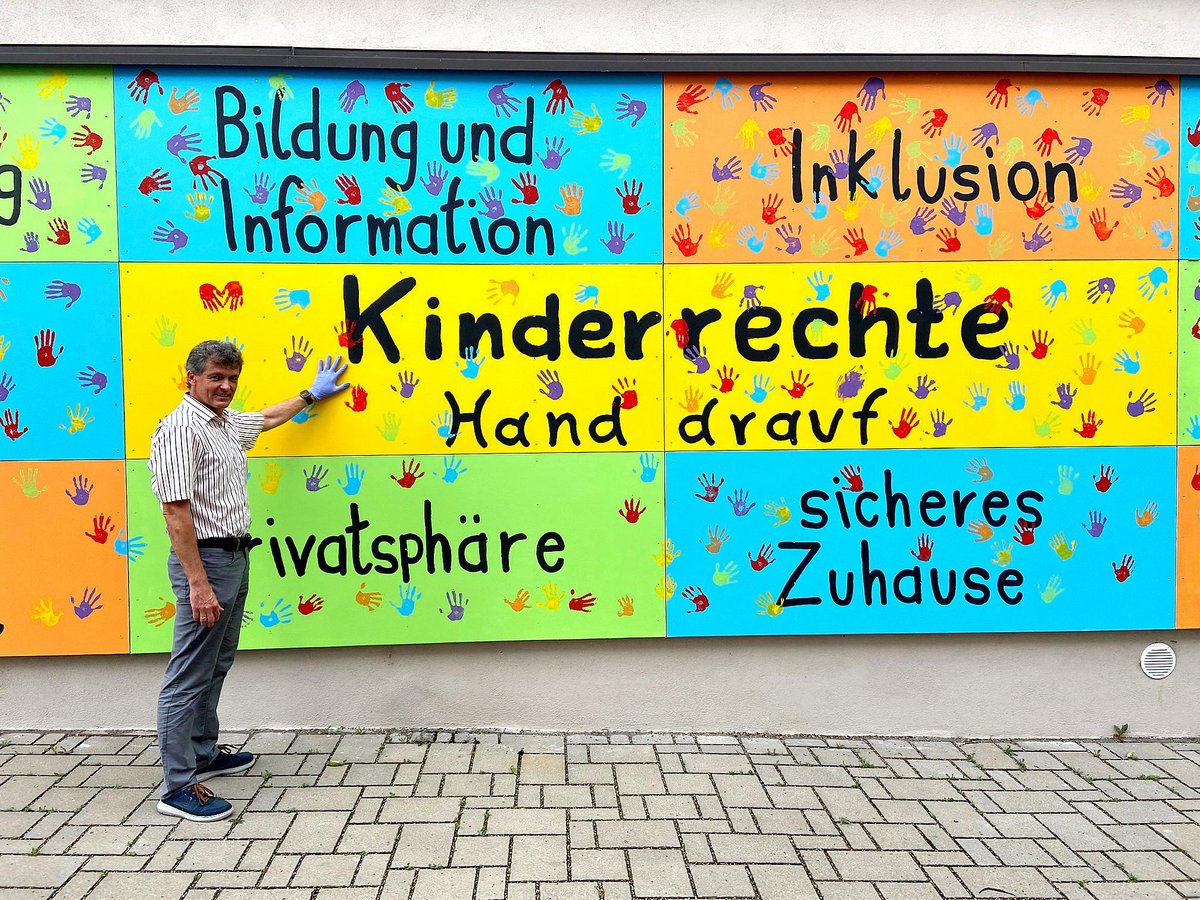 Bildung und
Information
Inklusion
Kinderrechte
Hand drauf
rivatsphäre
sicheres
Zuhause